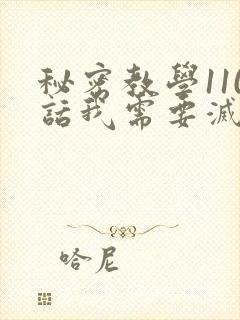 秘密教學110
話我需要滅
哈尼